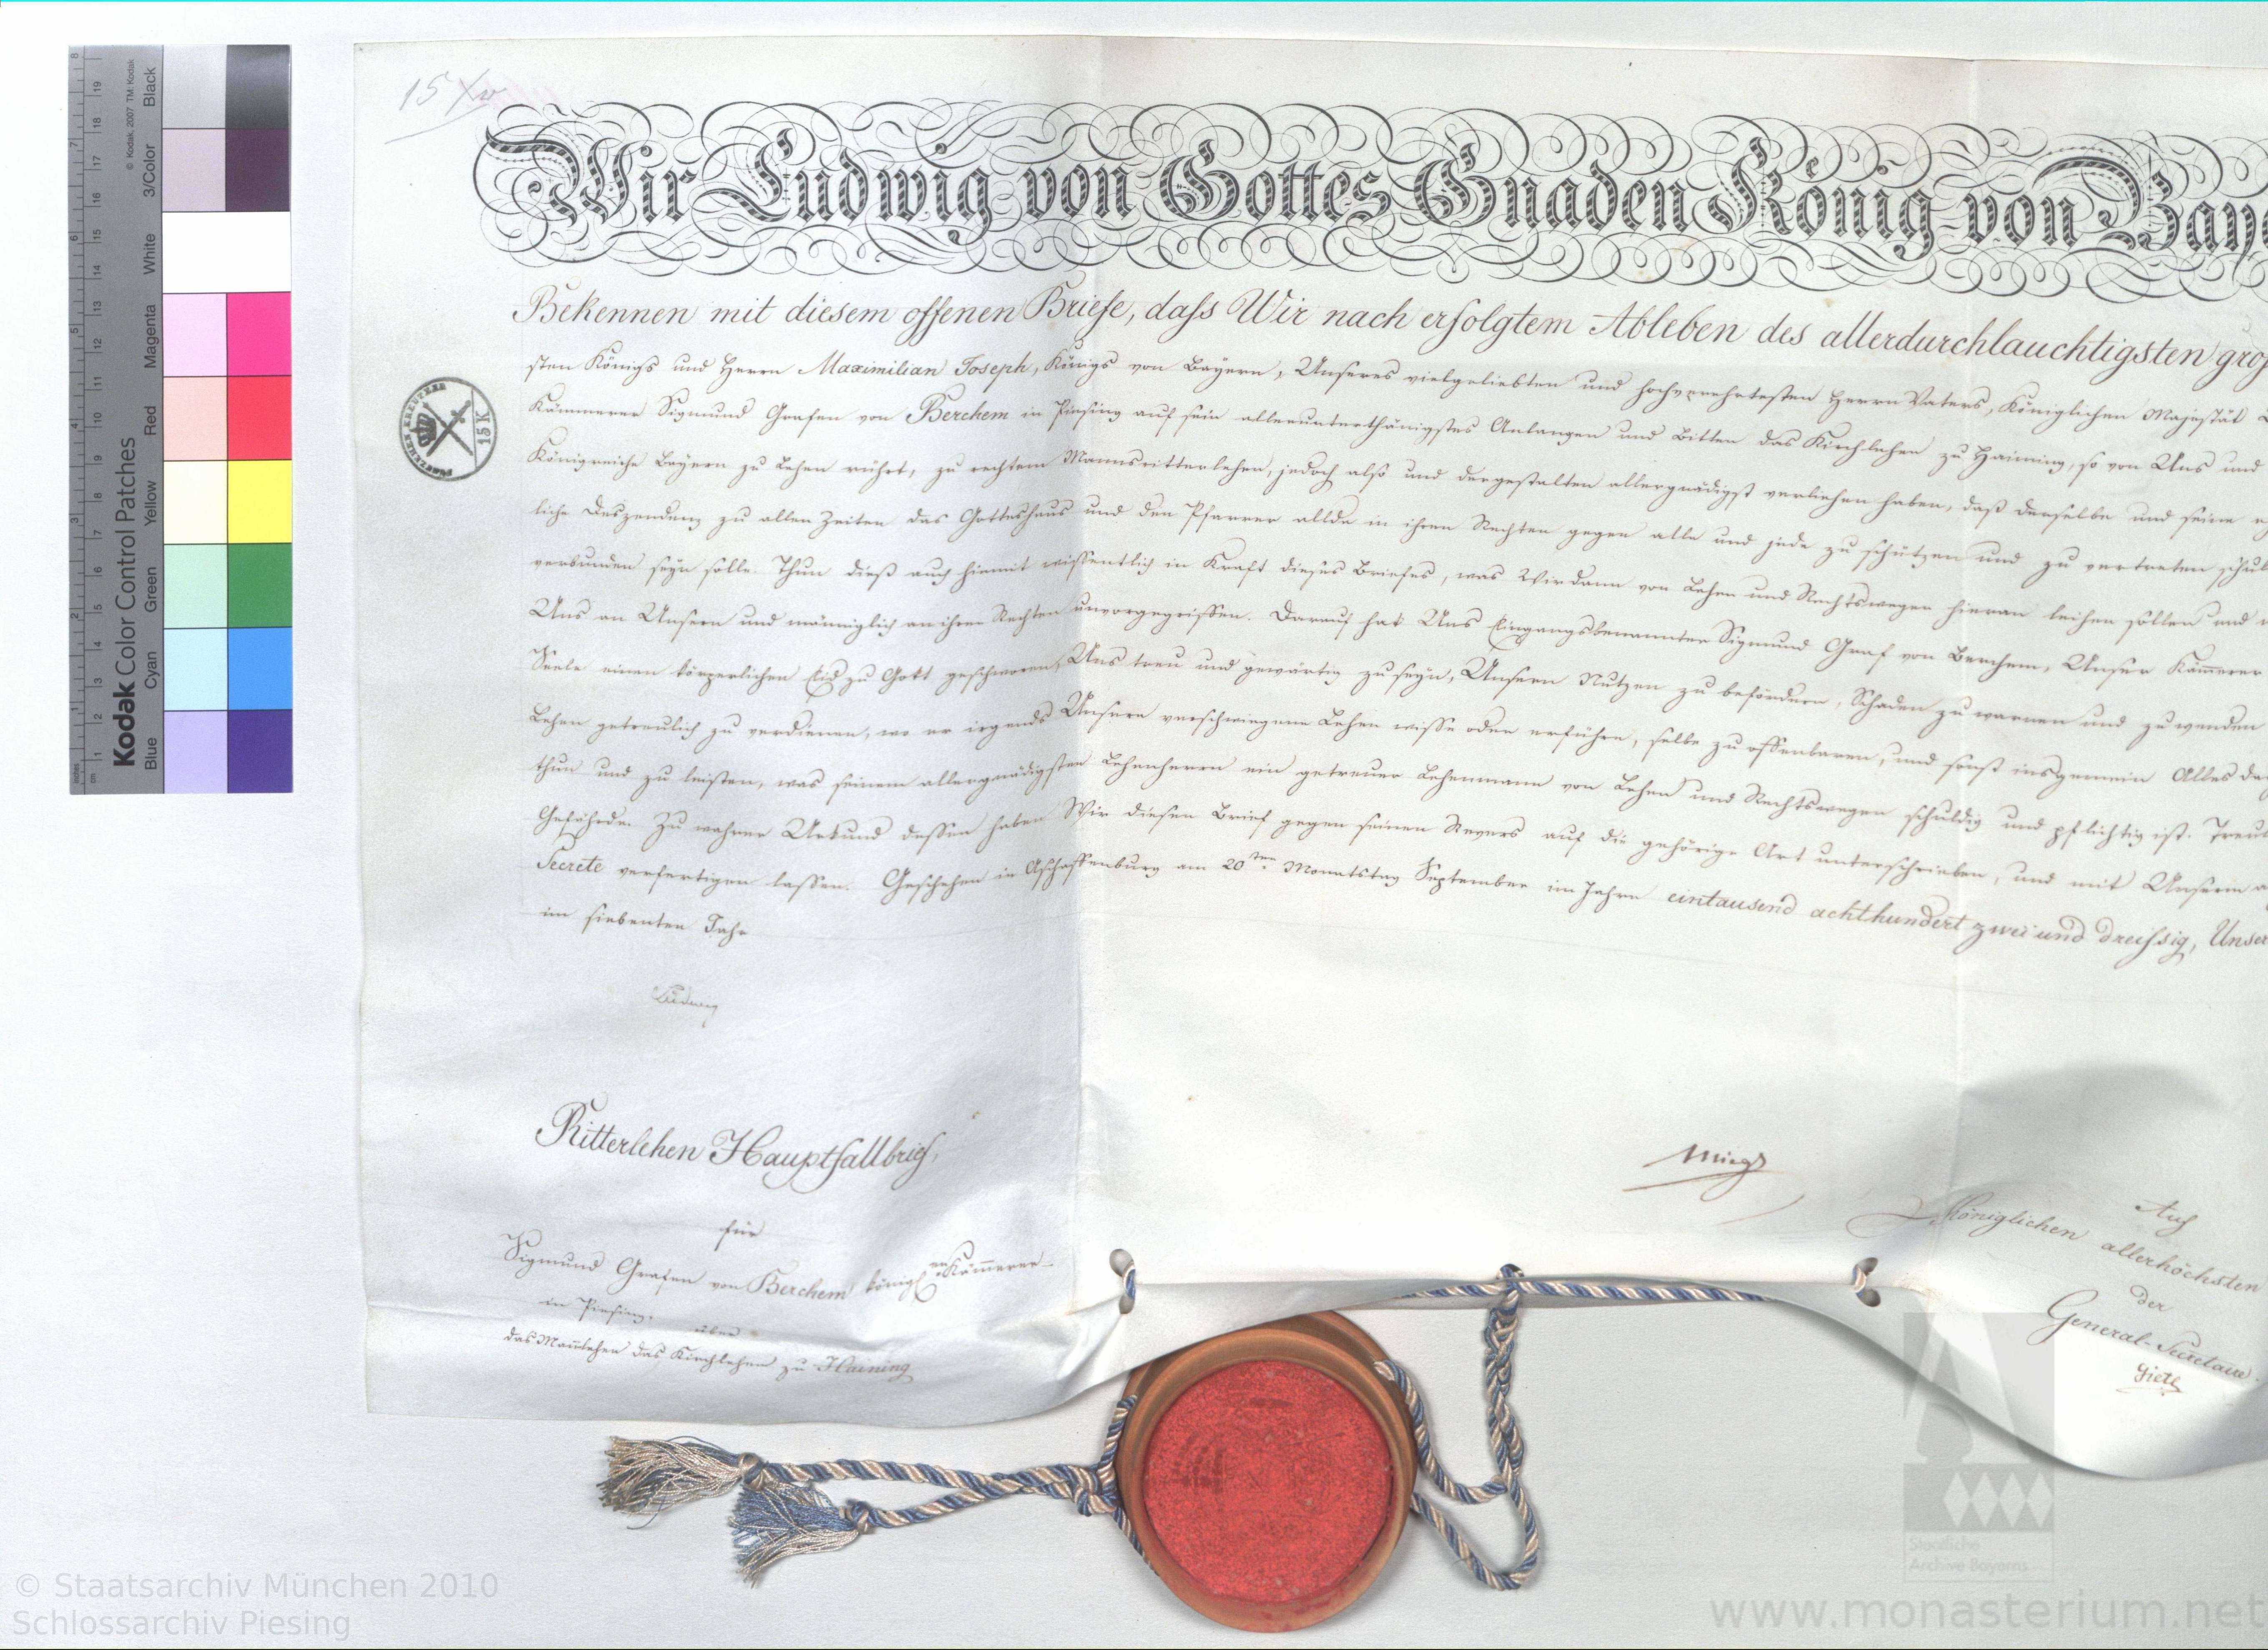 15 xr
Wir Ludwig von Gottes Gnaden König von Baye
Bekennen mit diesem offenen Briefe, dass Wir nach erfolgtem Ableben des allerdurchlauchtigsten gros
sten Königs und Herrn Maximilian Joseph, Königs von Bayern, Unseres vielgeliebten und hochverehrtesten Herrn Vaters, Königlichen Majestät
Kämmerer Sigmund Grafen von Berchem in Piesing auf sein allerunterthänigstes Anlangen und Bitten das Kirchlehen zu Haiming, so von Uns und
Königreiche Bayern zu Lehen rührt, zu rechtem Mannsritterlehen, jedoch also und dergestalten allergnädigst verliehen haben, daß derselbe und seine
liche Deszendenz zu allen Zeiten das Gotteshaus und den Pfarrer allda in ihren Rechten gegen alle und jede zu schützen und zu vertreten schul
verbunden seyn solle. Thun dieß auch hiemit wissentlich in Kraft dieses Briefes, was Wir dann von Lehen und Rechtswegen hieran leihen sollen und
Uns an Unsern und männiglich an ihren Rechten unvorgegriffen. Darauf hat Uns Eingangsbenannter Sigmund Graf von Berchem, Unser Kämmerer
Seele einen körperlichen Eid zu Gott geschworen, Uns treu und gewärtig zu seyn, Unsern Nutzen zu befördern, Schaden zu warnen und zu wenden
Lehen getreulich zu verdienen, wo er irgends Unsere verschwiegene Lehen wisse oder erführe, selbe zu offenbaren, und sonst insgemein Alles da
thun und zu leisten, was seinem allergnädigsten Lehenherrn ein getreuer Lehenmann von Lehen und Rechtswegen schuldig und pflichtig ist. Treul
Gefährde. Zu wahrer Urkund dessen haben Wir diesen Brief gegen seinen Revers auf die gehörige Art unterschrieben, und mit Unserm
Secrete verfertigen lassen. Geschehen in Aschaffenburg am 20ten Monatstag September im Jahre eintausend achthundert zwei und dreissig, Unser
im siebenten Jahr
Ludwig
FUNFZEHEN KREUZER
15 K
Ritterlehen Hauptfallbrief,
für
Sigmund Grafen von Berchem königlen Kämmerer
in Piesing,
über
das Mannlehen das Kirchlehen zu Haiming
Mieg
Auf
Königlichen allerhöchsten
der
General-Secretaire.
Gietl
Kodak Color Control Patches
© Kodak, 2007 TM: Kodak
Blue Cyan Green Yellow Red Magenta White 3/Color Black
inches 1 2 3 4 5 6 7 8
cm 1 2 3 4 5 6 7 8 9 10 11 12 13 14 15 16 17 18 19
Staatliche
Archive Bayerns
© Staatsarchiv München 2010
Schlossarchiv Piesing
www.monasterium.net